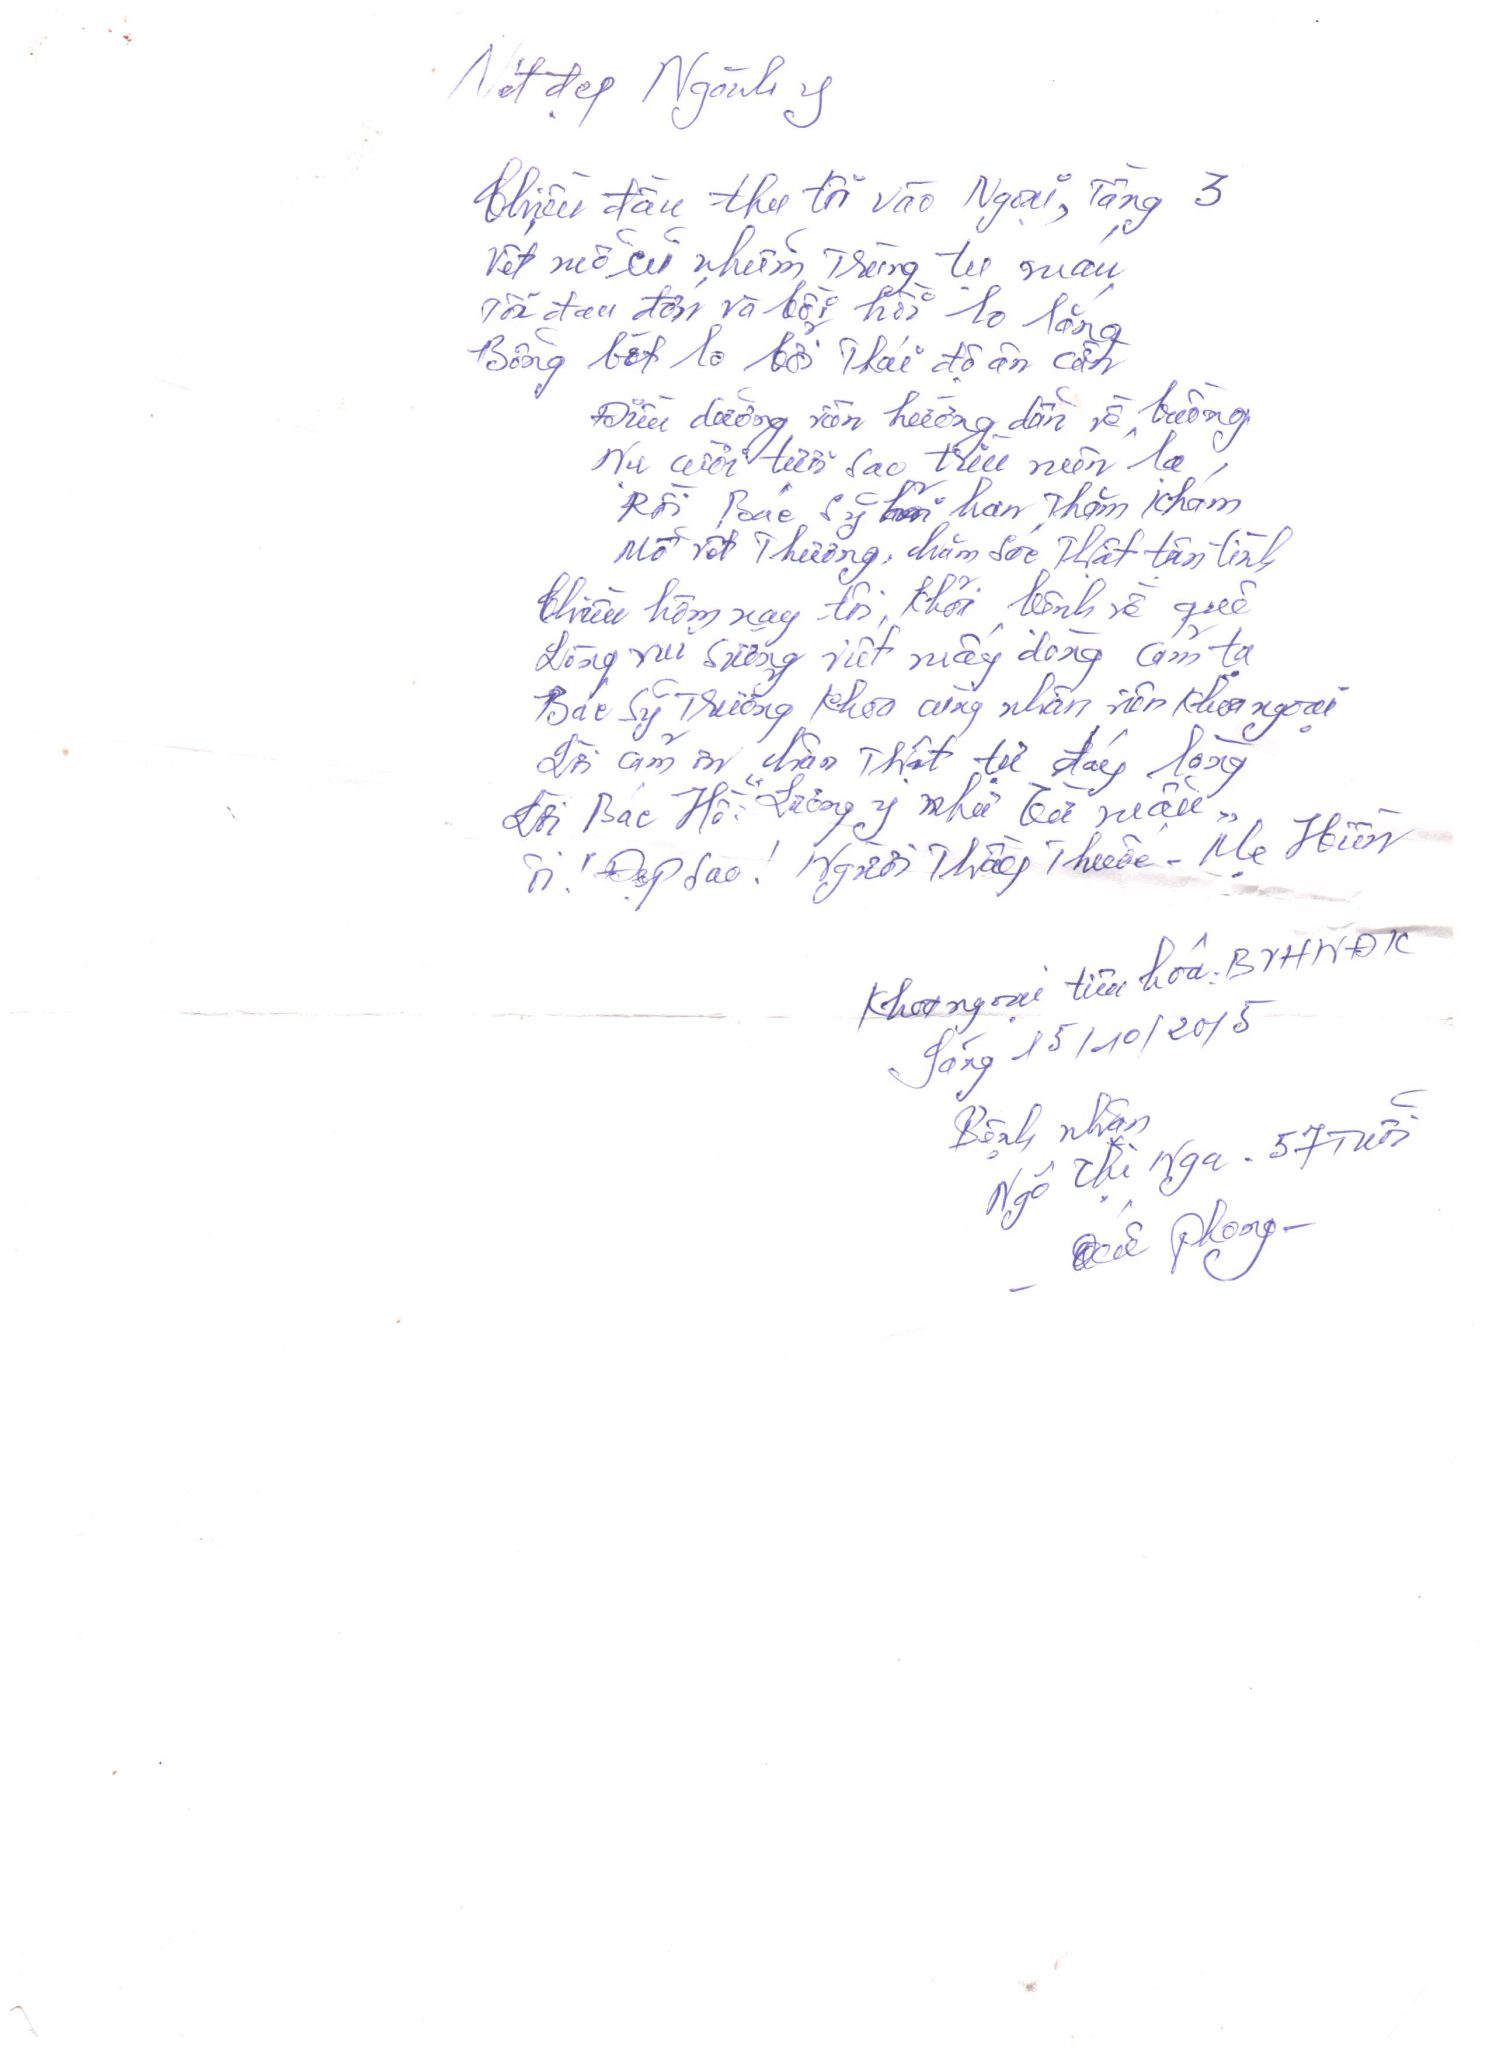 Nét đẹp Ngành y
Chiều đầu thu tôi vào Ngoại, Tầng 3
Vết mổ cũ nhiễm Trùng tụ máu
Tôi đau đớn và bồi hồi lo lắng
Bỗng bớt lo bởi Thái độ ân cần
Điều dưỡng viên hướng dẫn về buồng
Nụ cười tươi sao trìu mến lạ
Rồi Bác Sỹ hỏi han Thăm Khám
Mổ vết Thương, chăm sóc Thật tận tình
Chiều hôm nay tôi khỏi bệnh về quê
Lòng vui sướng viết mấy dòng cảm tạ
Bác Sỹ Trưởng Khoa cùng nhân viên Khoa ngoại
Lời cảm ơn chân Thật tự đáy lòng
Lời Bác Hồ: "Lương y như từ mẫu"
Ôi! Đẹp sao! Người Thầy Thuốc - Mẹ Hiền
Khoa ngoại tiêu hóa: BVHNĐK
Sáng 15/10/2015
Bệnh nhân
Ngô Thị Nga - 57 Tuổi
- Quế Phong -